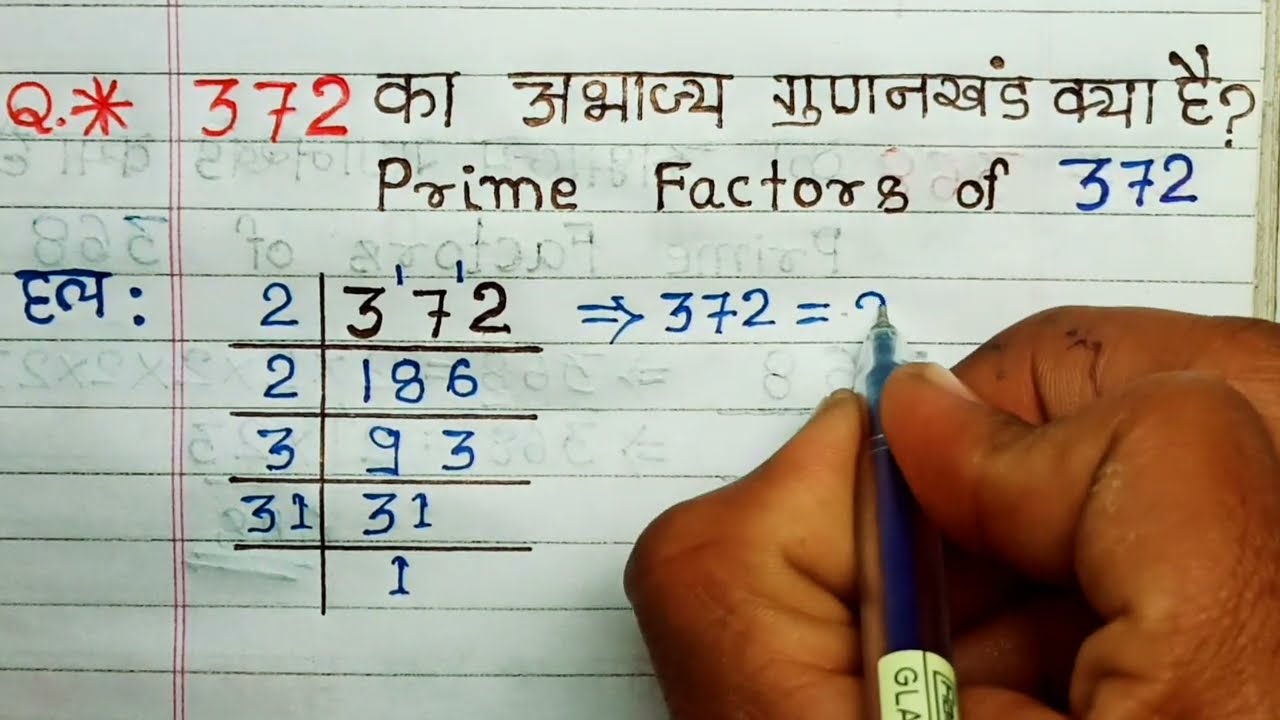 Q.* 372 का अभाज्य गुणनखंड क्या है?
Prime Factors of 372
हल :
2 | 372 ⇒ 372 = 2
2 | 186
3 | 93
31 | 31
1
GLA